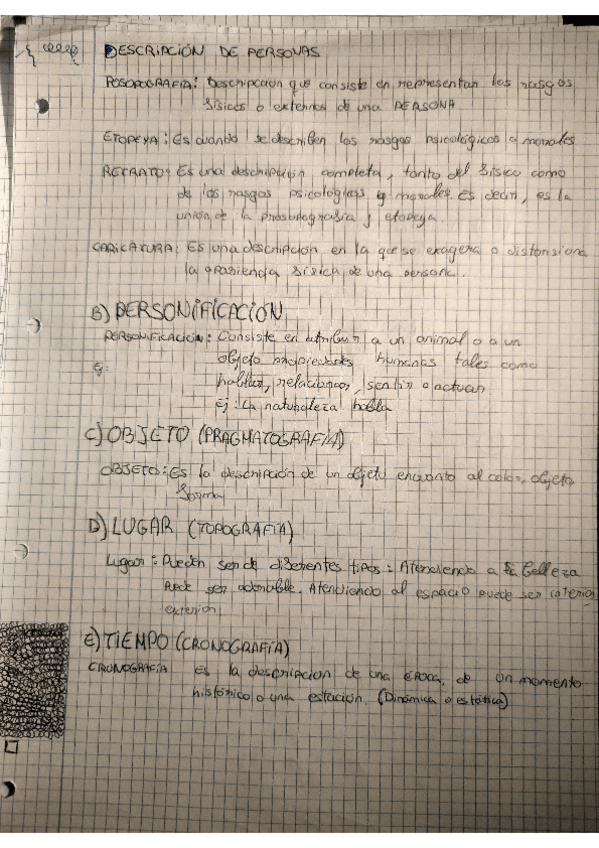 DESCRIPCIÓN DE PERSONAS
POSOPOGRAFIA: Descripcion que consiste en representar los rasgos
físicos o externos de una PERSONA
ETOPEYA: Es cuando se describen los rasgos psicológicos o morales
RETRATO: Es una descripción completa, tanto del físico como
de los rasgos psicológicos y morales es decir, es la
unión de la prosopografia y etopeya.
CARICATURA: Es una descripción en la que se exagera o distorsiona
la apariencia física de una persona.
B) PERSONIFICACIÓN
PERSONIFICACIÓN: Consiste en atribuir a un animal o a un
objeto propiedades humanas tales como
hablar, relacionar, sentir o actuar
Ej: La naturaleza habla
C) OBJETO (PRAGMATOGRAFÍA)
OBJETO: Es la descripción de un objeto encuanto al color, objeto,
forma
D) LUGAR (TOPOGRAFÍA)
Lugar: Pueden ser de diferentes tipos: Atendiendo a la belleza
Puede ser adorable. Atendiendo al espacio puede ser interior,
exterior
E) TIEMPO (CRONOGRAFÍA)
CRONOGRAFÍA Es la descripcion de una época, de un momento
histórico o una estación. (Dinámica o estática)